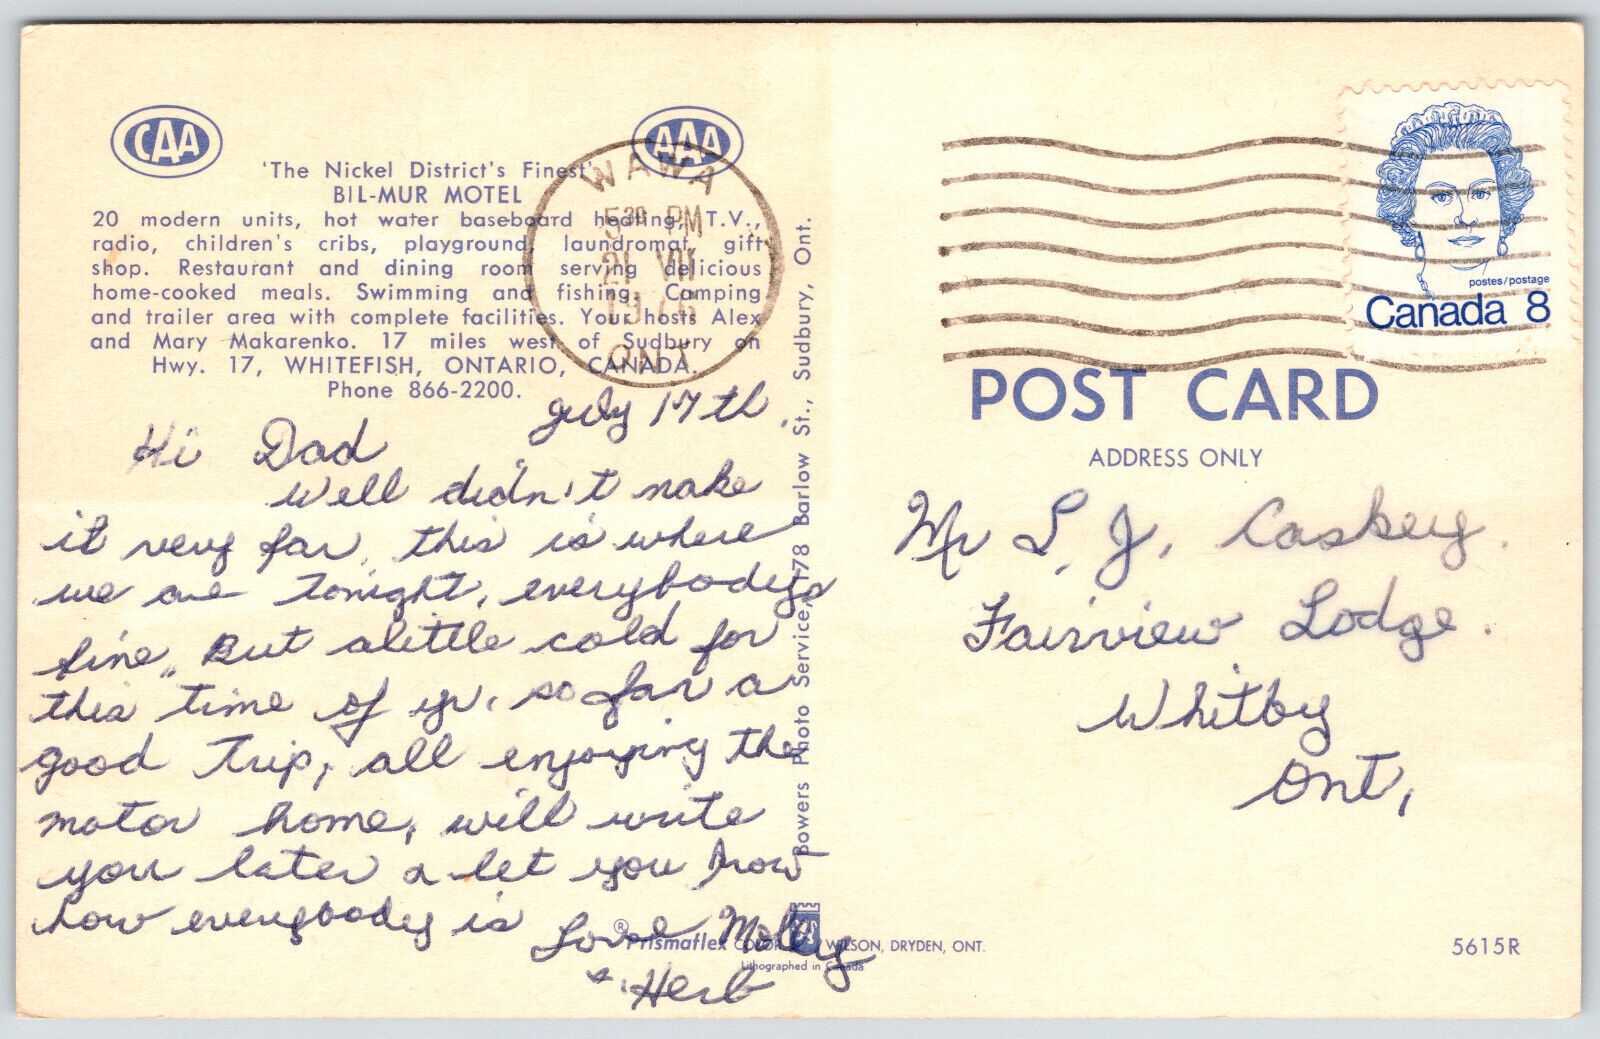 CAA
AAA
'The Nickel District's Finest'
BIL-MUR MOTEL
20 modern units, hot water baseboard heating, T.V.,
radio, children's cribs, playground, laundromat, gift
shop. Restaurant and dining room serving delicious
home-cooked meals. Swimming and fishing. Camping
and trailer area with complete facilities. Your hosts Alex
and Mary Makarenko. 17 miles west of Sudbury on
Hwy. 17, WHITEFISH, ONTARIO, CANADA.
Phone 866-2200.
WAWA
5 30 PM
21 VII
ONT
July 17th.
Hi Dad
Well didn't make
it very far, this is where
we are tonight, everybodys
fine, But alittle cold for
this time of yr. so far a
good Trip, all enjoying the
motor home, will write
you later & let you know
how everybody is Love Molly
& Herb
Bowers Photo Service, 178 Barlow St., Sudbury, Ont.
®Prismaflex COLOR WILSON, DRYDEN, ONT.
Lithographed in Canada
postes/postage
Canada 8
POST CARD
ADDRESS ONLY
Mr L. J. Caskey.
Fairview Lodge.
Whitby
Ont,
5615R